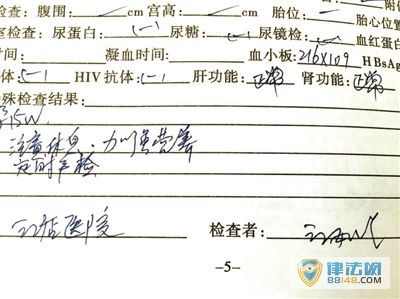 检查：腹围： cm 宫高： cm 胎位：
室检查：尿蛋白：(-) 尿糖：(-) 尿镜检：(-) 血红蛋白
时间： 凝血时间： 血小板：216×109 HBsAg
体：(-) HIV抗体：(-) 肝功能：正常 肾功能：正常
殊检查结果：
15W
注意休息，加强营养
定时产检
医院
检查者：
-5-
律法网
88148.com